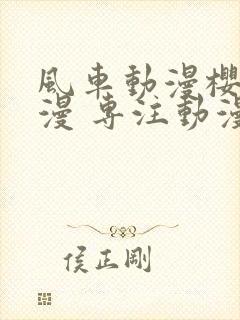 風車動漫櫻
漫 專注動漫
侯正剛